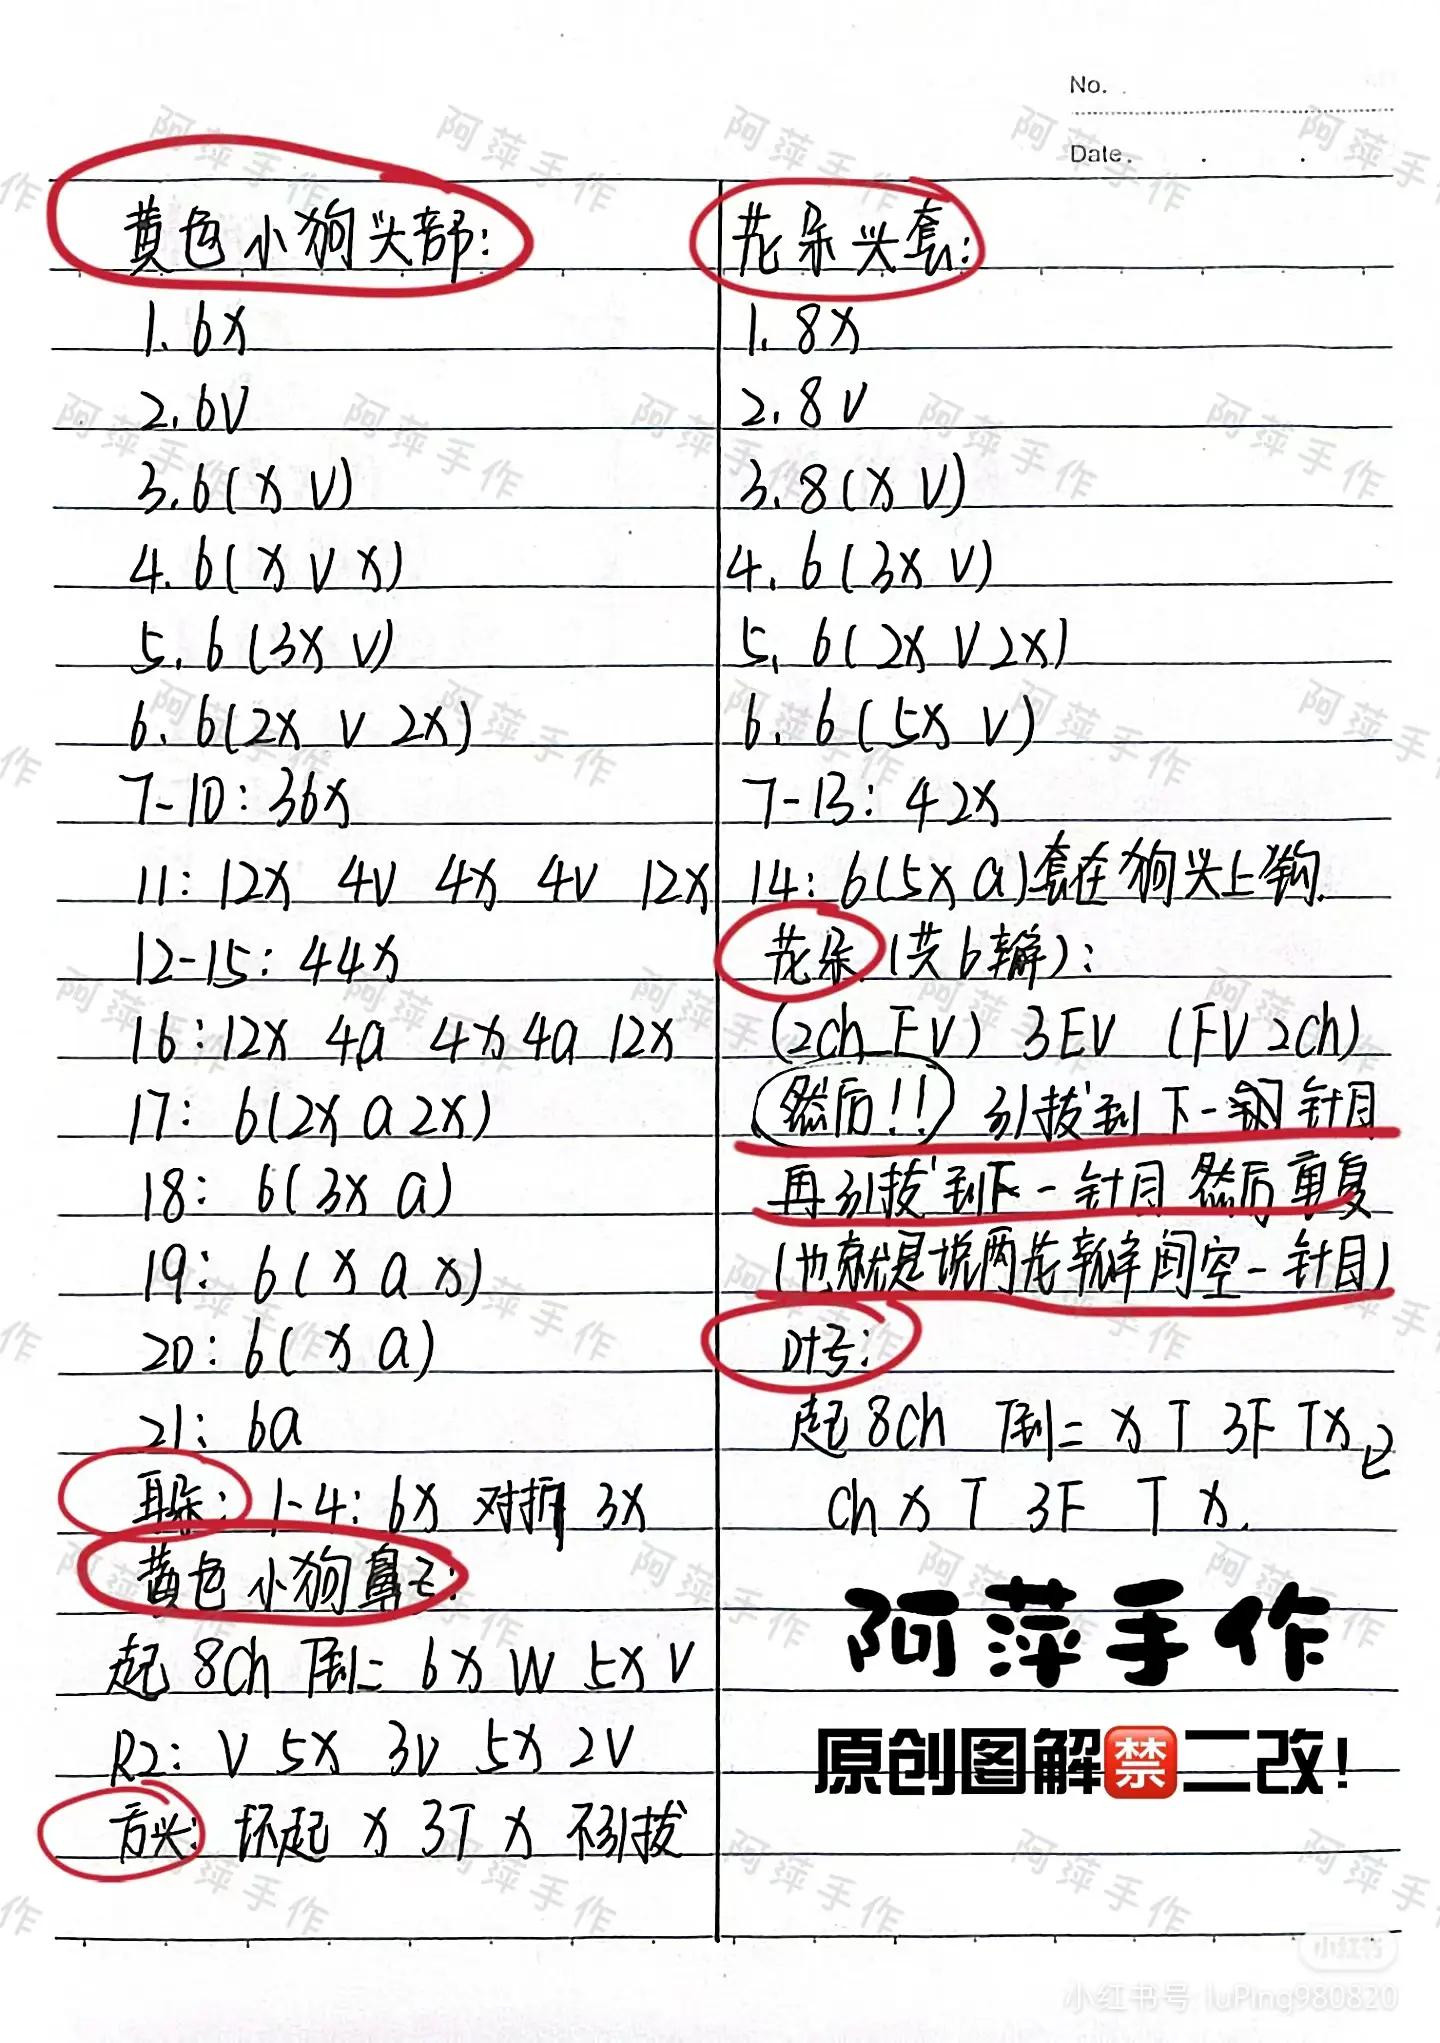 No.
Date.
黄色小狗头部:
1. 6X
2. 6V
3. 6(X V)
4. 6(X V X)
5. 6(3X V)
6. 6(2X V 2X)
7-10: 36X
11: 12X 4V 4X 4V 12X
12-15: 44X
16: 12X 4a 4X 4a 12X
17: 6(2X a 2X)
18: 6(3X a)
19: 6(X a X)
20: 6(X a)
21: 6a
耳朵: 1-4: 6X 对折 3X
黄色小狗鼻子:
起 8ch 倒二 6X W 5X V
R2: V 5X 3V 5X 2V
环起 X 3T X 不引拔
花朵头套:
1. 8X
2. 8V
3. 8(X V)
4. 6(3X V)
5. 6(2X V 2X)
6. 6(5X V)
7-13: 42X
14: 6(5X a)套在狗头上钩.
花朵(共6瓣):
(2ch FV) 3EV (FV 2ch)
然后!! 引拔到下一个针目
再引拔到下一针目 然后重复
(也就是说两花瓣间空一针目)
叶子:
起 8ch 倒二 X T 3F T X
ch X T 3F T X.
阿萍手作
原创图解禁二改!
小红书
小红书号 luPing980820